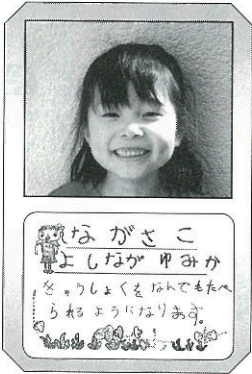 ながさこ
よしなが ゆみか
きゅうしょくをなんでもたべ
られるようになります。